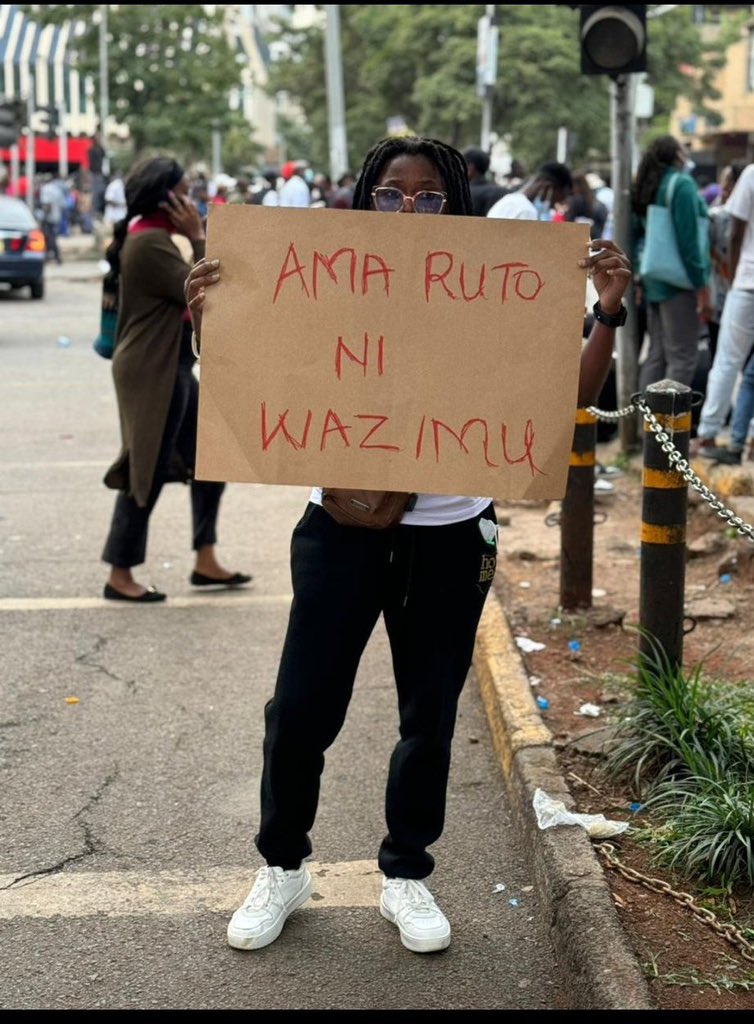 AMA RUTO
NI
WAZIMU